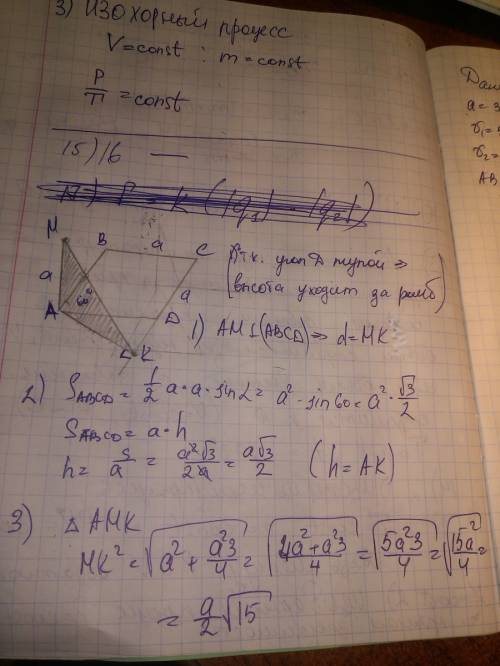 3) Изохорный процесс
V=const : m=const
P/T = const
15) 16 —
M
B
a
C
a
60°
a
A
D
K
т.к. угол D тупой ⇒
высота уходит за ромб
1) AM⊥(ABCD) ⇒ d=MK
2) SABCD = 1/2 a·a·sin L = a² · sin 60 = a² · √3/2
SABCD = a·h
h = S/a = a²√3/2a = a√3/2 (h=AK)
3) △ AMK
MK² = √(a² + a²3/4) = √(4a²+a²3/4) = √(5a²3/4) = √(15a²/4) =
= a/2 √15
Дан
a = 3
r₁ =
r₂ =
AB